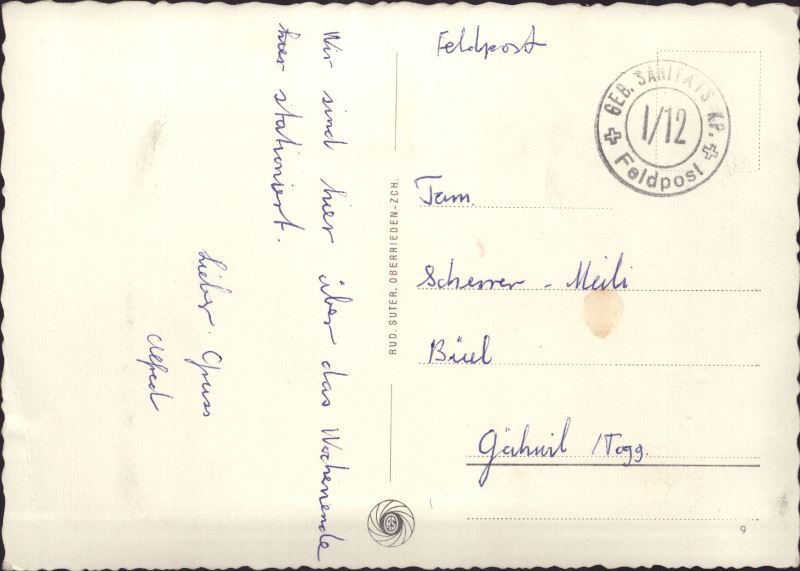 Wir sind hier über das Wochenende
hier stationiert.
Lieber Gruss
Alfred
RUD. SUTER, OBERRIEDEN-ZCH.
Feldpost
GEB. SANITÄTS KP.
I/12
Feldpost
Fam.
Scherrer - Meili
Büel
Gähwil /Togg.
9